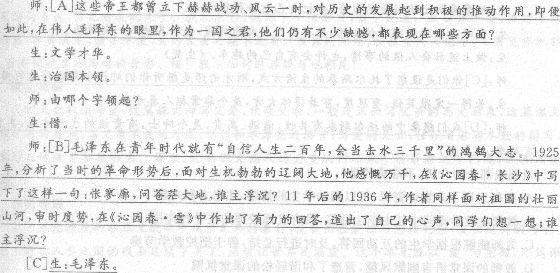 师:[A]这些帝王都曾立下赫赫战功、风云一时,对历史的发展起到积极的推动作用,即便
如此,在伟人毛泽东的眼里,作为一国之君,他们仍有不少缺憾,都表现在哪些方面?
生:文学才华。
生:治国本领。
师:由哪个字领起?
生:惜。
师:[B]毛泽东在青年时代就有“自信人生二百年,会当击水三千里”的鸿鹄大志。1925
年,分析了当时的革命形势后,面对生机勃勃的辽阔大地,他感慨万千,在《沁园春·长沙》中写
下了这样一句:怅寥廓,问苍茫大地,谁主浮沉?11年后的1936年,作者同样面对祖国的壮丽
山河,审时度势,在《沁园春·雪》中作出了有力的回答,道出了自己的心声,同学们想一想:谁
主浮沉?
[C]生:毛泽东。